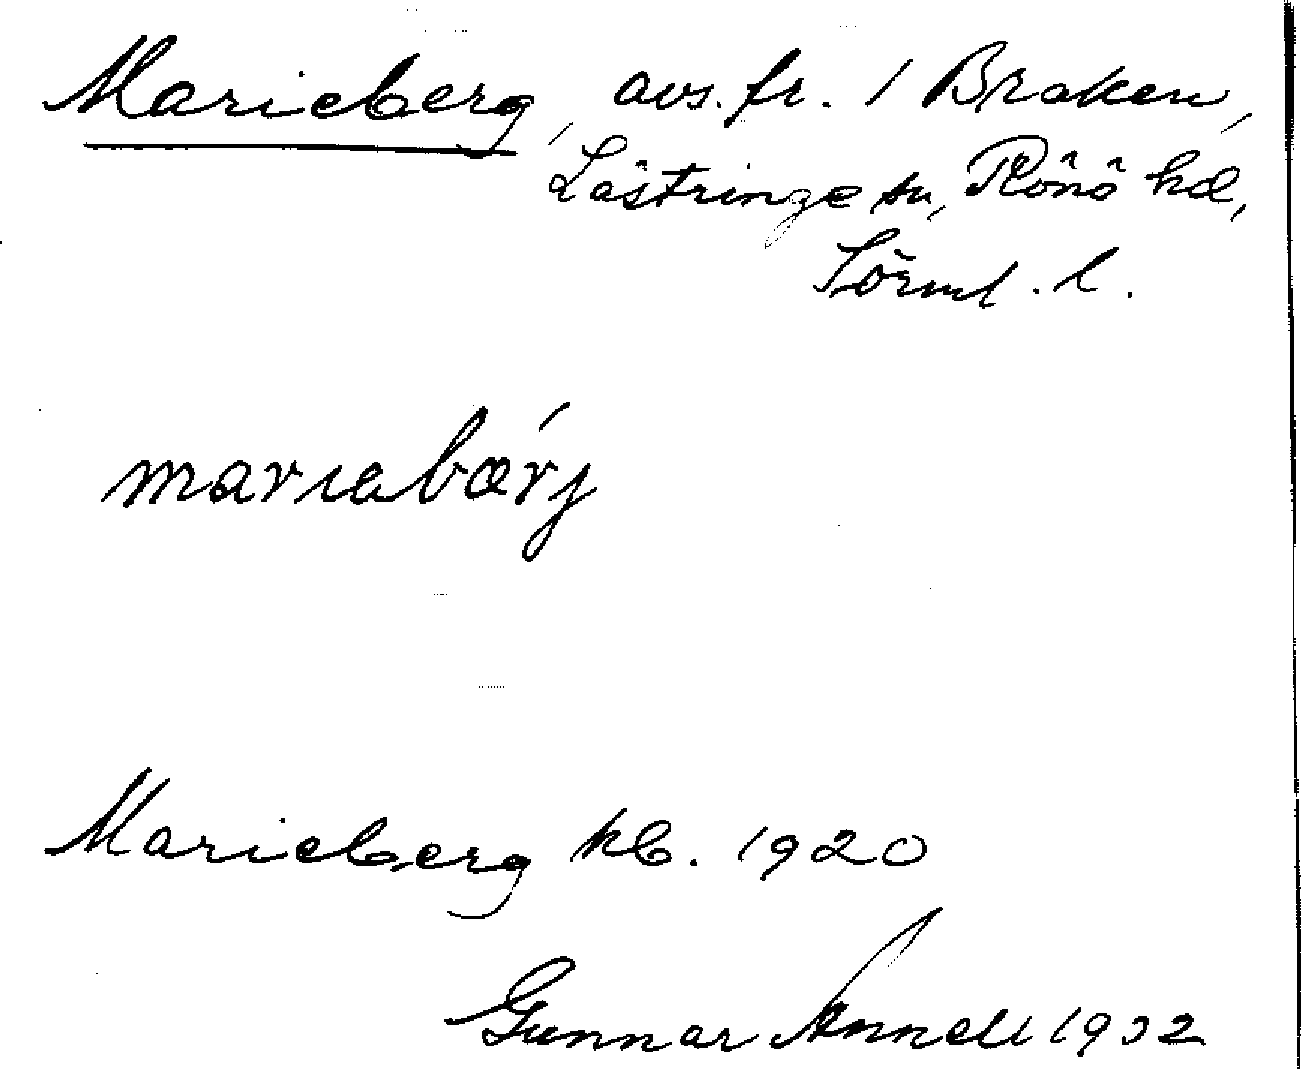 Marieberg, avs. fr. 1 Braken,
Lästringe sn, Rönö hd,
Sörml. l.
mariabærj
Marieberg kb. 1920
Gunnar Annell 1932